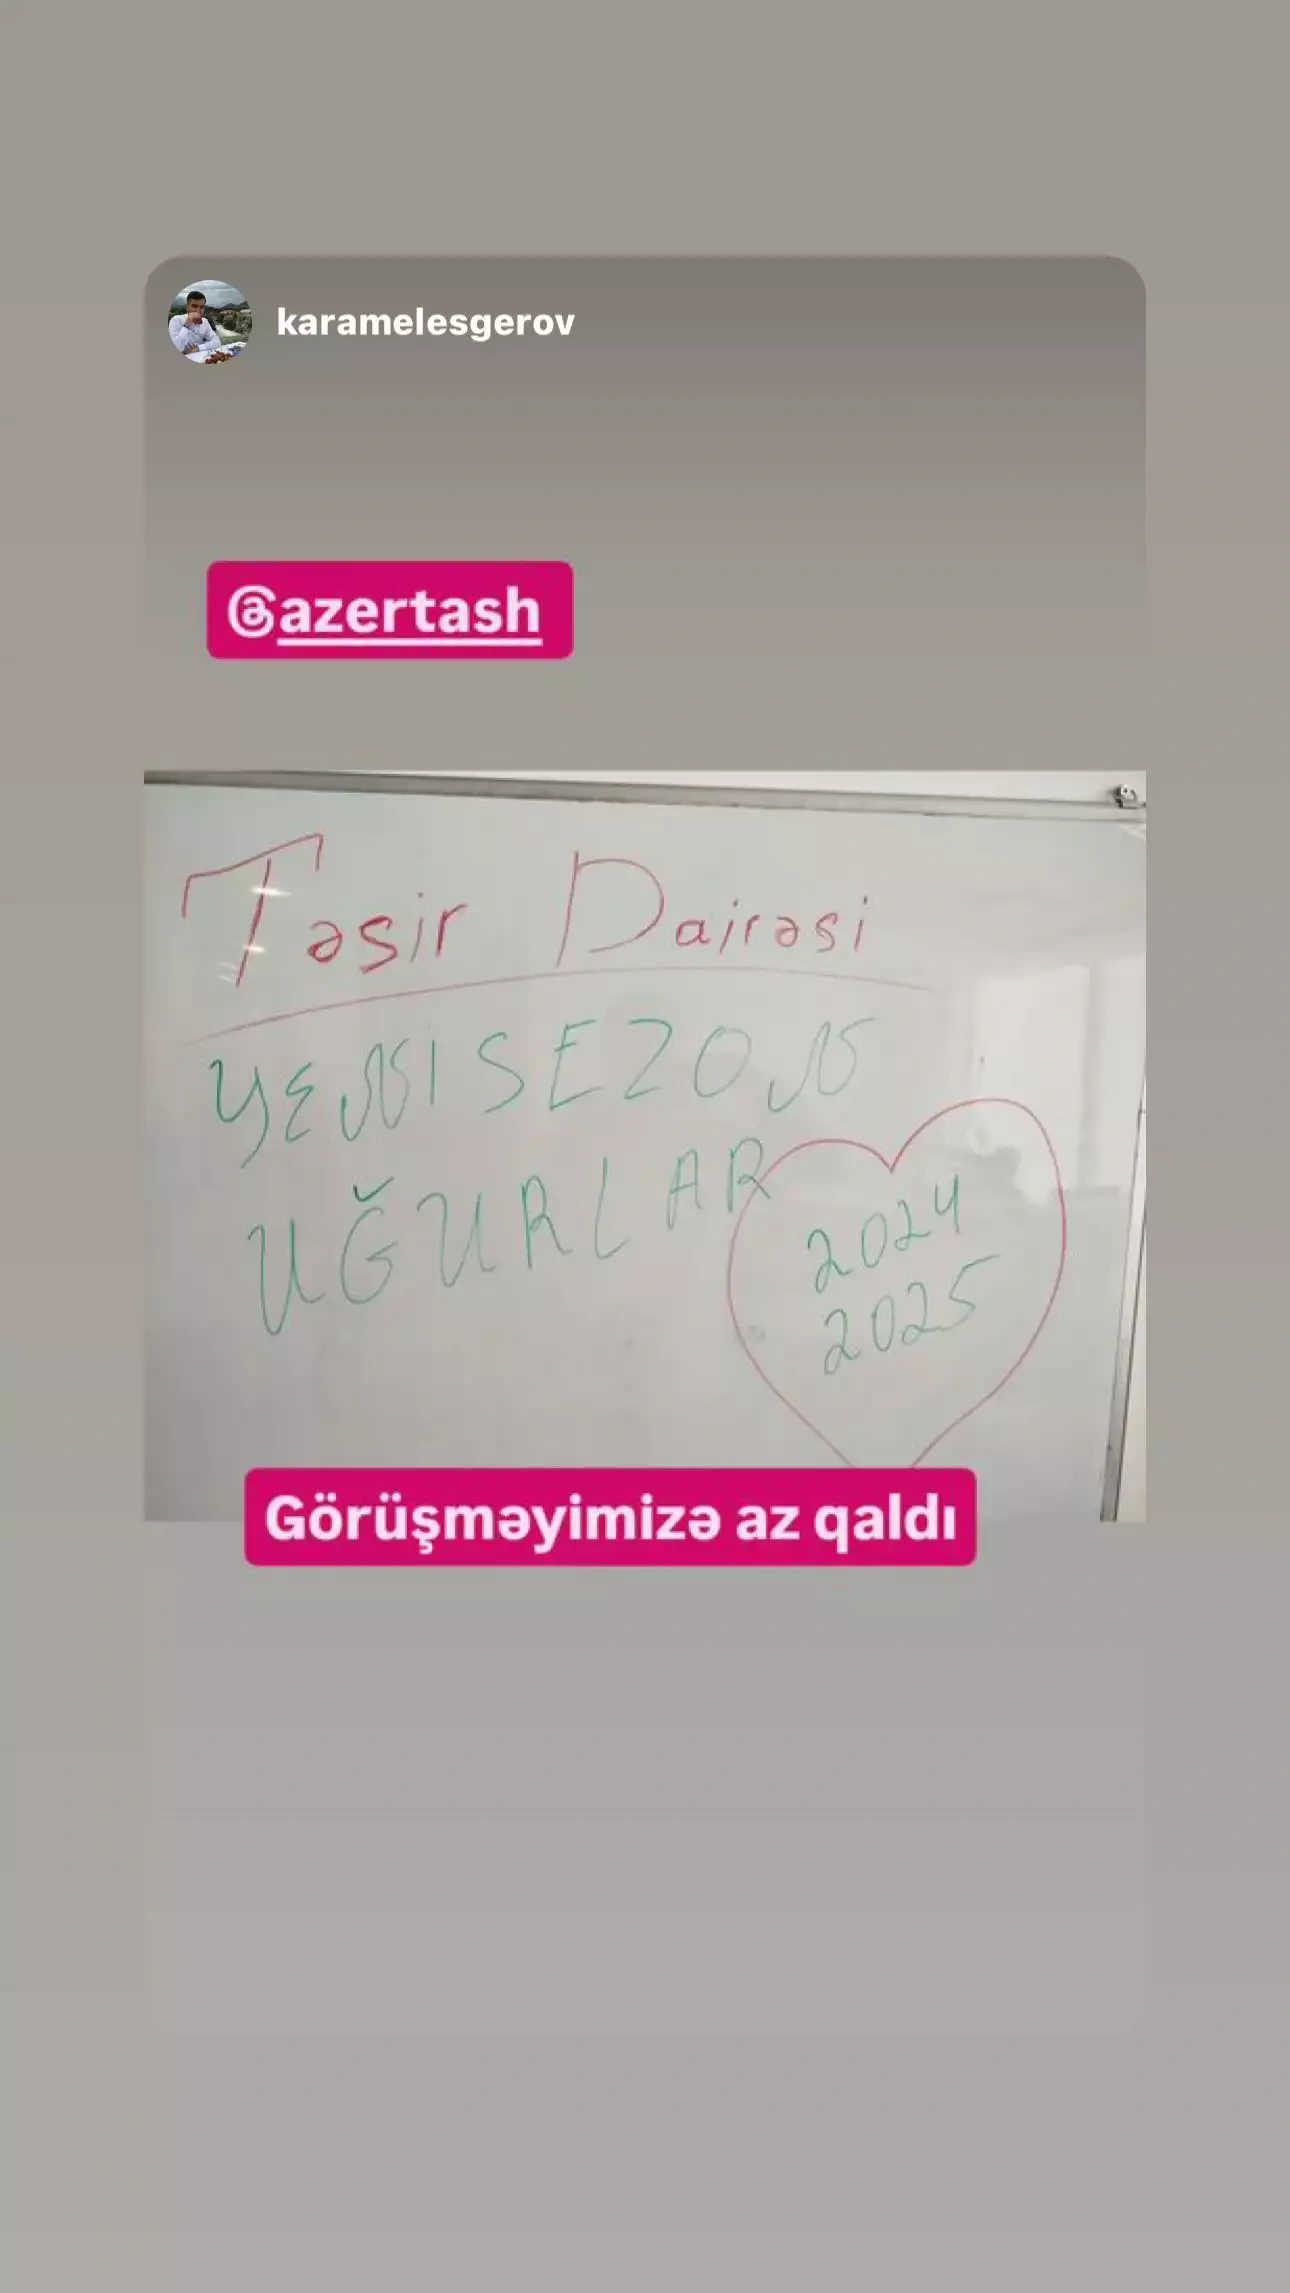 karamelesgerov
@azertash
Təsir Dairəsi
YENİ SEZON
UĞURLAR
2024
2025
Görüşməyimizə az qaldı